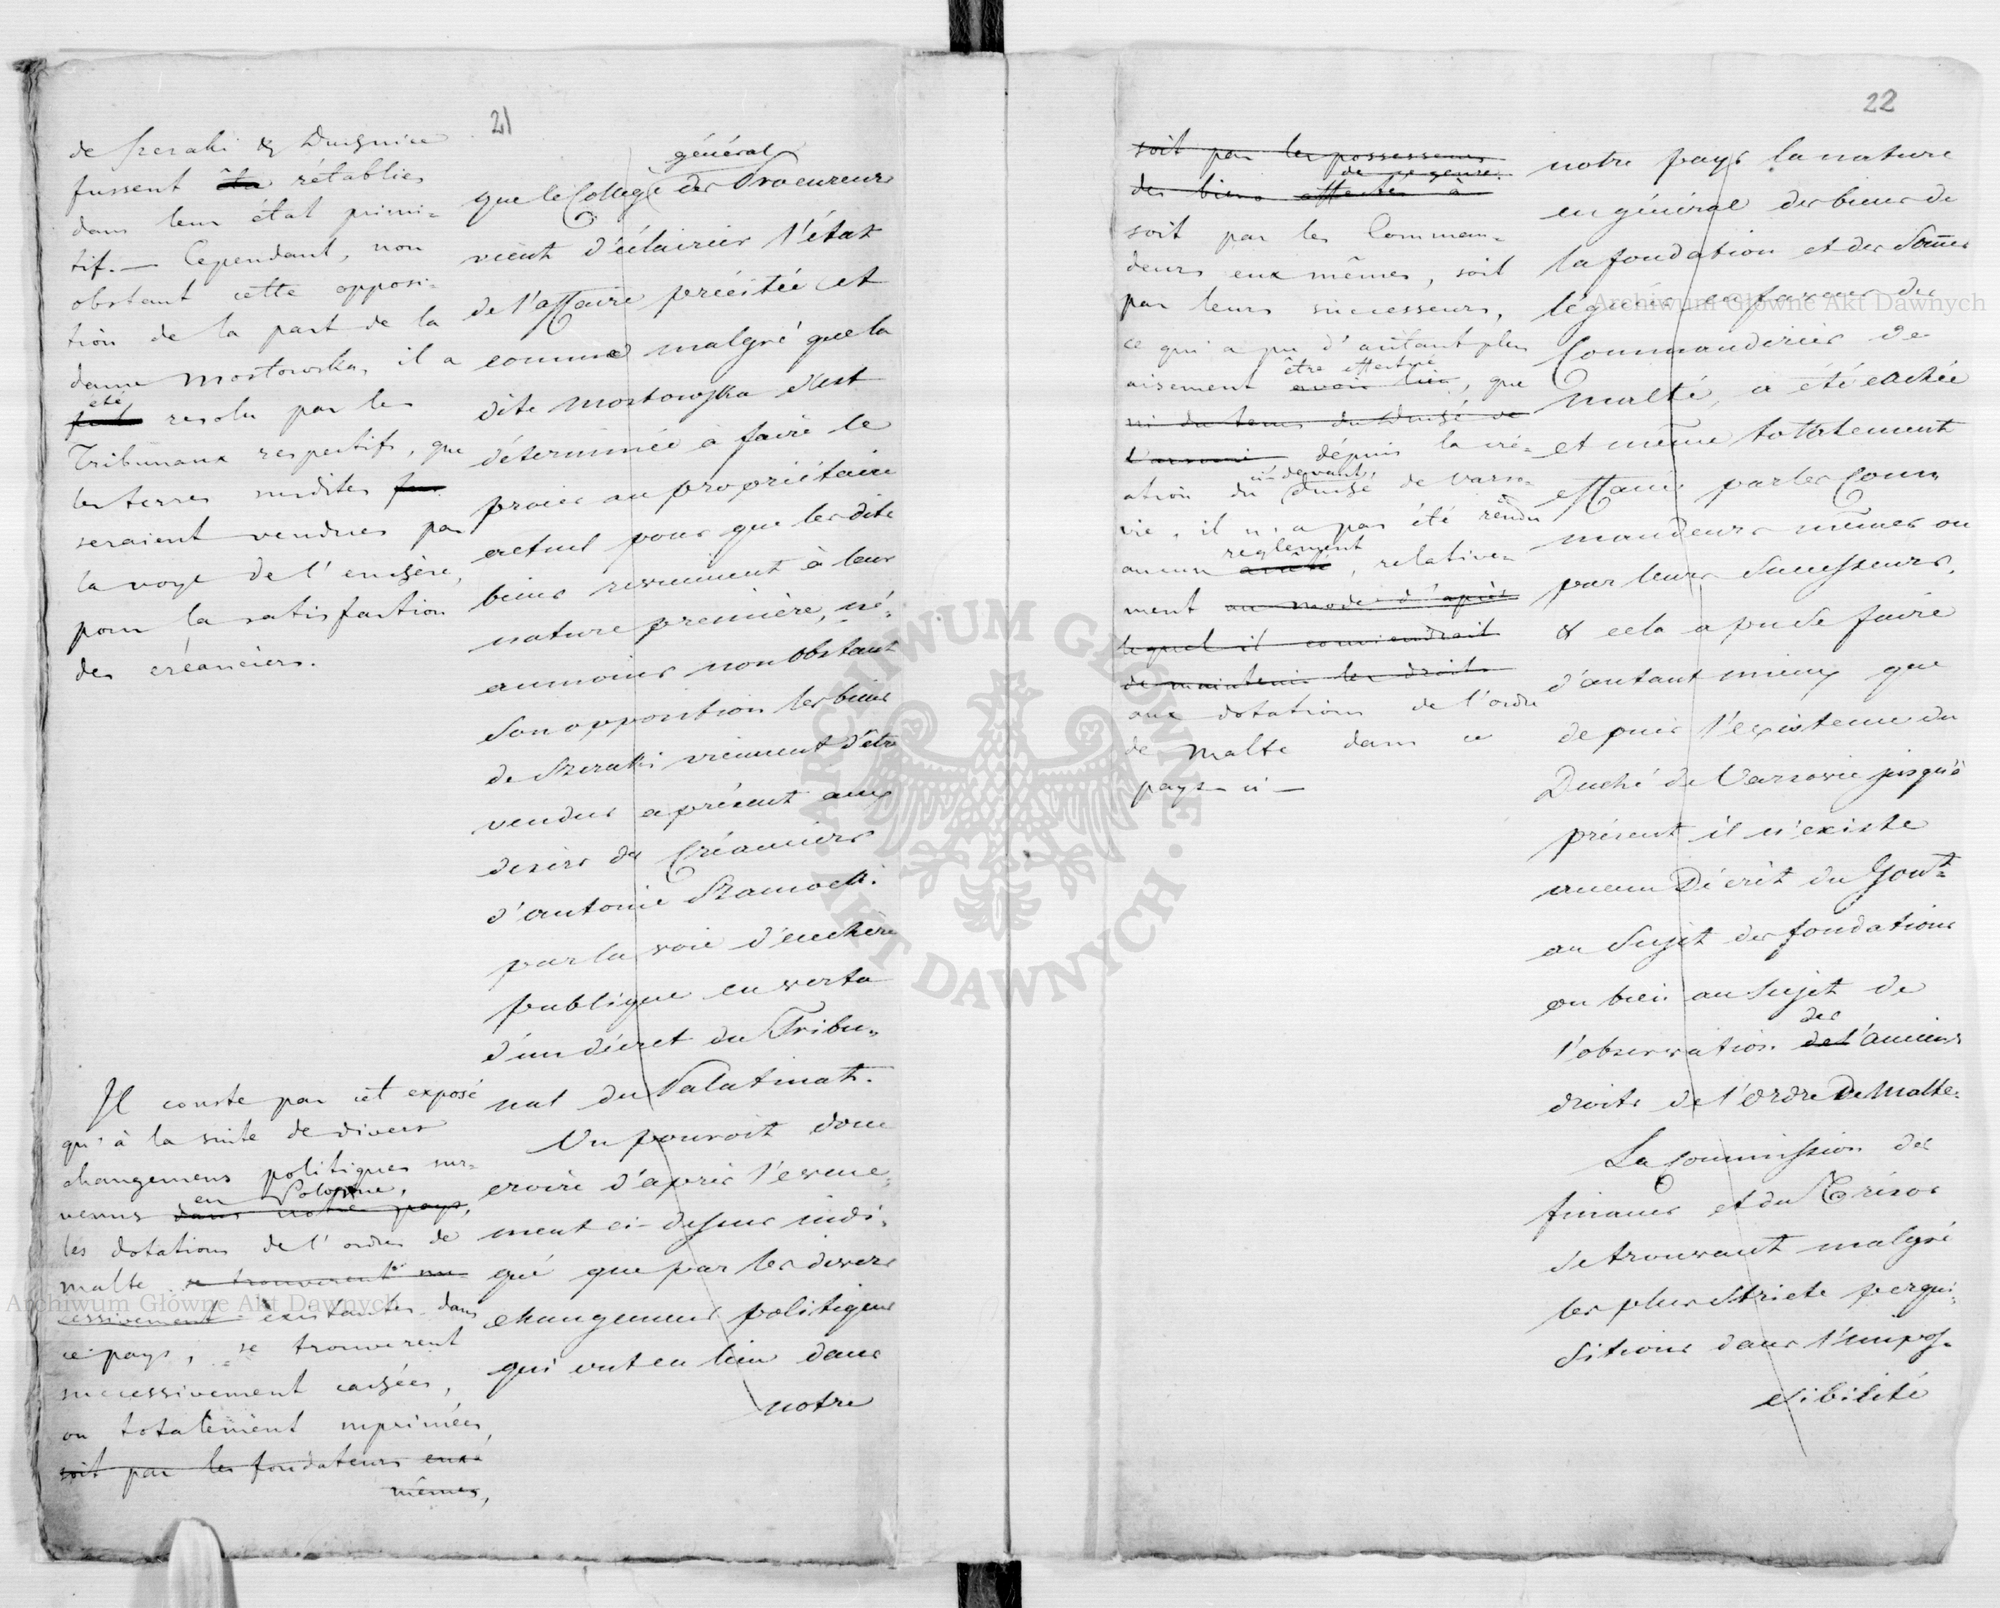 21
de Szeraki & Duczymin
fussent rétablies
dans leur état primi-
tif. — Cependant, non
obstant cette opposi-
tion de la part de la
dame Mostowska, il a
été
fut resolu par les
Tribunaux respectifs, que
les terres susdites
seraient vendues par
la voye de l'enchère,
pour la satisfaction
des créanciers.
Il conste par cet exposé
qu'à la suite de divers
changemens politiques sur-
en Pologne,
venus dans notre pays,
les dotations de l'ordre de
Malte se trouverent suc-
cessivement existantes dans
ce pays, se trouverent
successivement cachées,
ou totalement supprimées,
soit par les fondateurs eux-
mêmes,
général
que le College des Procureurs
vient d'éclaircir l'état
de l'affaire précitée et
comme malgré que la
dite Mostowska s'est
déterminée à faire le
procès au propriétaire
actuel pour que les dits
biens reviennent à leur
nature première, né-
anmoins nonobstant
son opposition les biens
de Szeraki viennent d'être
vendus a présent aux
desirs des Créanciers
d'antoine Szamocki
par la voie d'enchère
publique en vertu
d'un décret du Tribu-
nal du Palatinat.
On pouroit donc
croire d'après l'évène-
ment ci-dessus indi-
qué que par les divers
changemens politiques
qui ont eu lieu dans
notre
22
soit par les possesseurs
de ce genre
des biens affectés à
soit par les Comman-
deurs eux mêmes, soit
par leurs successeurs,
ce qui a pu d'autant plus
être effectué
aisement avoir lieu, que
ni du tems du Duché de
Varsovie depuis la cré-
ci-devant
ation du Duché de Varso-
vie, il n'a pas été rendu
reglement
aucun arrêté, relative-
ment au mode d'après
lequel il conviendrait
de maintenir les droits
aux dotations de l'ordre
de Malte dans ce
pays-ci —
notre pays la nature
en général des biens de
la fondation et des Sommes
léguées en faveur des
Commanderies de
Malte, a été cachée
et même totalement
effacée par les Com-
mandeurs mêmes ou
par leurs Successeurs,
& cela a pu se faire
d'autant mieux que
depuis l'existence du
Duché de Varsovie jusqu'à
présent il n'existe
aucun Décrèt du Gouvt
au Sujet des fondations
ou bien au Sujet de
des
l'observation del'anciens
droits de l'Ordre De Malte.
La Commission des
finances et du Trésor
se trouvant malgré
les plus Stricte perqui-
sitions dans l'impos-
sibilité
ARCHIWUM GŁÓWNE AKT DAWNYCH
Archiwum Główne Akt Dawnych
Archiwum Główne Akt Dawnych